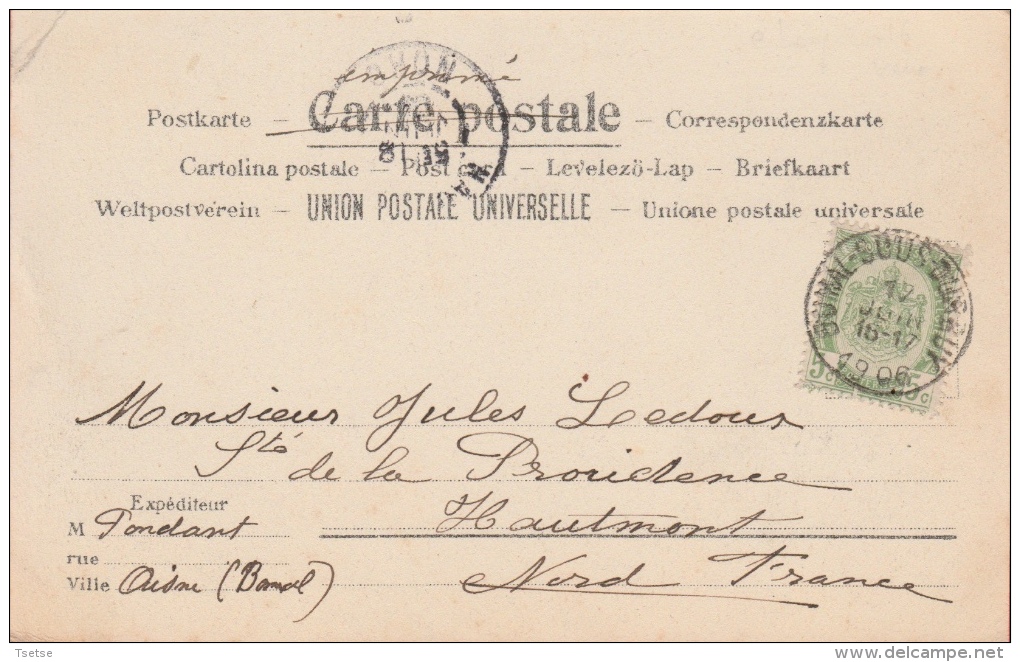 imprimé
Postkarte – Carte postale – Correspondenzkarte
Cartolina postale – Post card – Levelezö-Lap – Briefkaart
Weltpostverein – UNION POSTALE UNIVERSELLE – Unione postale universale
17
JUIN
16-17
1906
5c 5c
Monsieur Jules Ledoux
Sté de la Providence
Expéditeur
Hautmont
M Pondant
rue
Nord France
Ville Aisne (Bomal)
Tsetse
http://www.delcampe.net